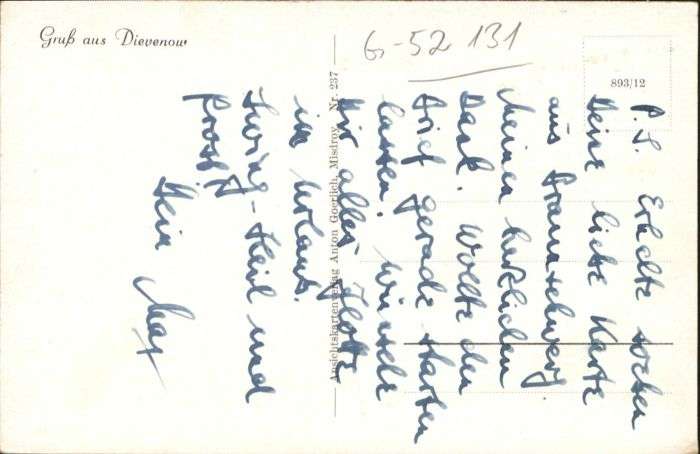 Gruß aus Dievenow
G-52 131
893/12
Ansichtskartenverlag Anton Goerlich, Misdroy. Nr. 237
P.S. Erhalte soeben
Deine liebe Karte
aus Braunschweig
Meinen herzlichen
Dank. Wollte den
Brief gerade starten
lassen. Wünsche
Dir alles
im Urlaub.
Swing-Heil und
Prost,
Dein